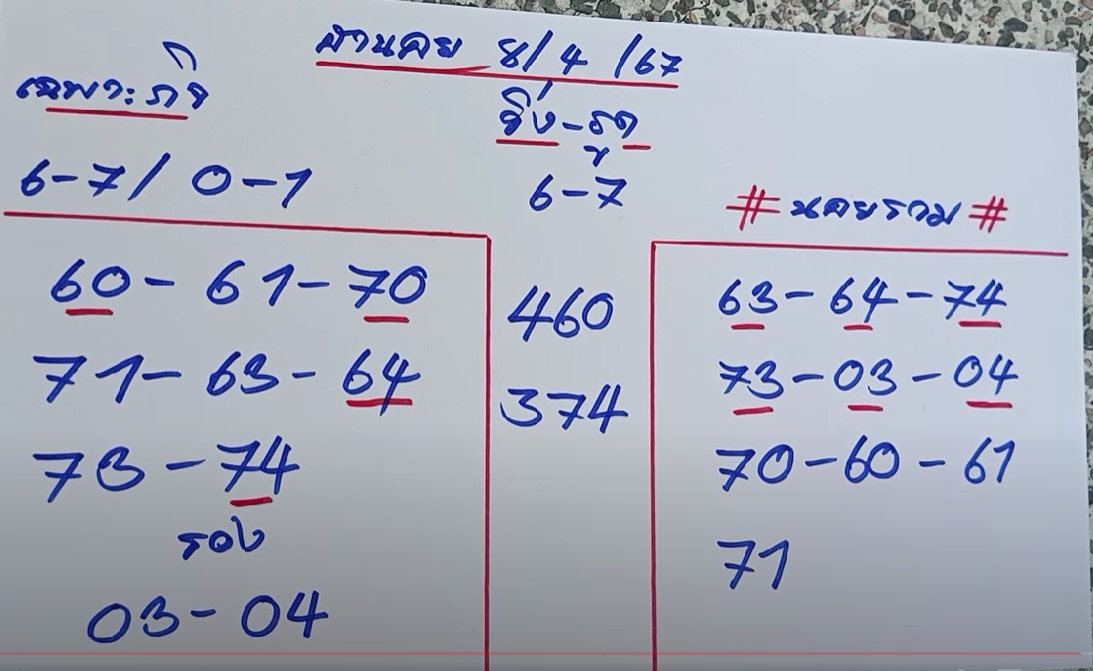 ฮานอย 8/4/67
เฉพาะกิจ
6-7/0-1
วิ่ง-รูด
6-7
60-61-70
71-63-64
73-74
รอง
03-04
460
374
#นอยรวม#
63-64-74
73-03-04
70-60-61
71